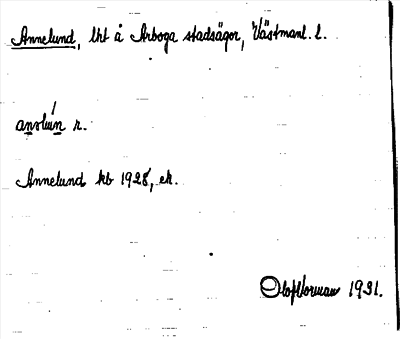 Annelund, lht å Arboga stadsägor, Västmanl. l.
r.
Annelund kb 1928, ek.
1931.